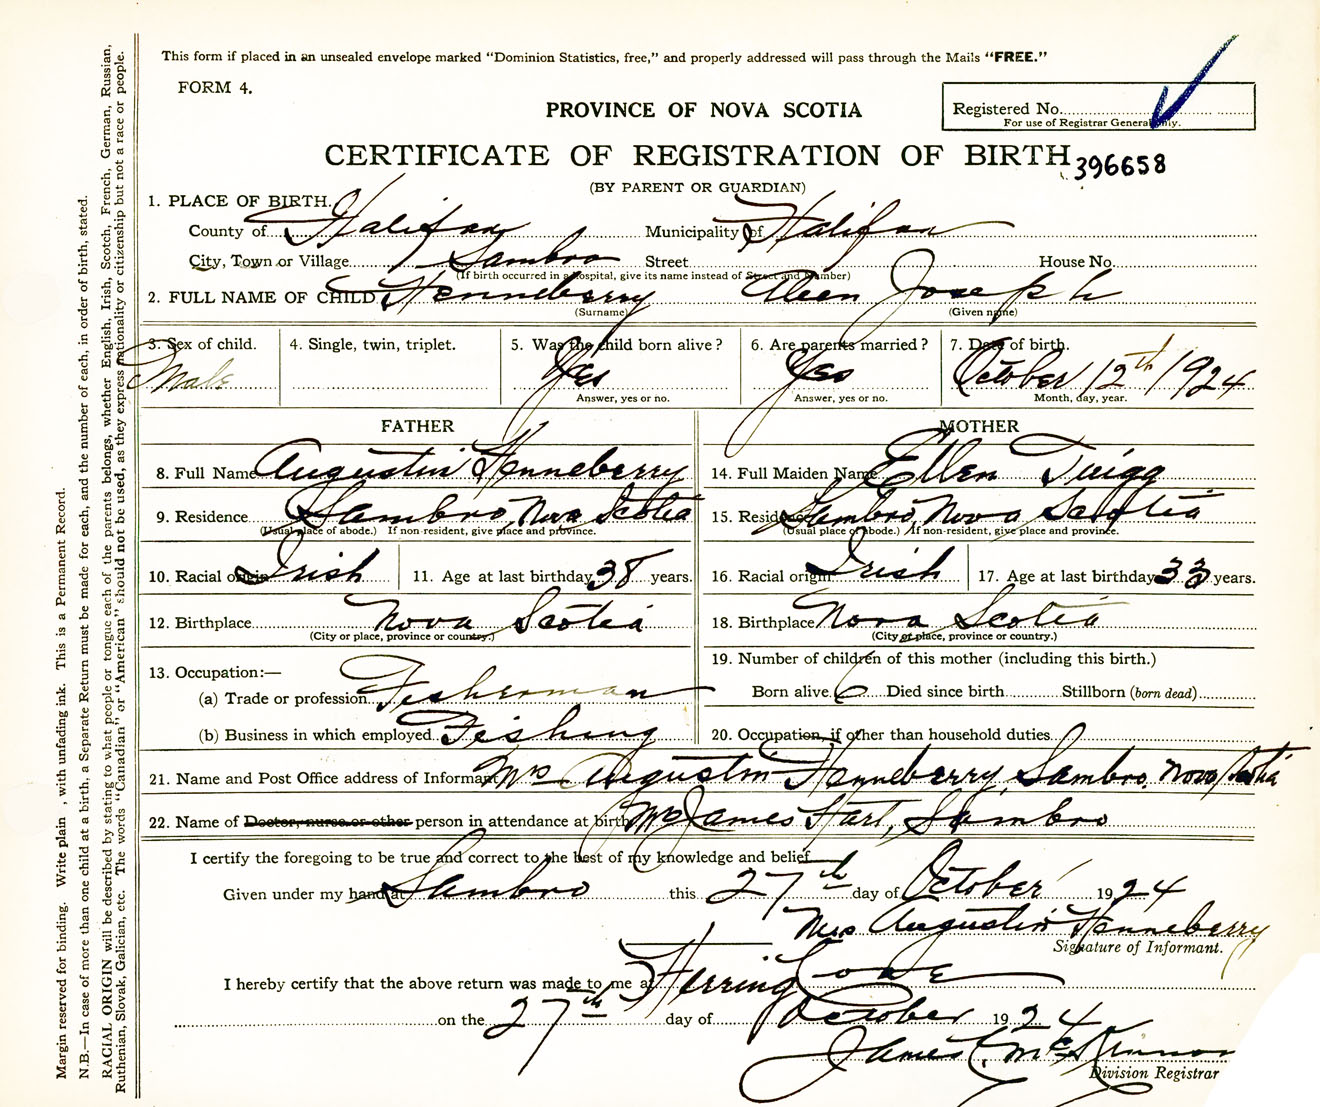 This form if placed in an unsealed envelope marked "Dominion Statistics, free," and properly addressed will pass through the Mails "FREE."
FORM 4.
PROVINCE OF NOVA SCOTIA
Registered No.
For use of Registrar General only.
CERTIFICATE OF REGISTRATION OF BIRTH
396658
(BY PARENT OR GUARDIAN)
1. PLACE OF BIRTH.
County of Halifax Municipality of Halifax
City, Town or Village Sambro Street House No.
(If birth occurred in a hospital, give its name instead of Street and Number)
2. FULL NAME OF CHILD Henneberry Aleen Joseph
(Surname) (Given name)
3. Sex of child. 4. Single, twin, triplet. 5. Was the child born alive? 6. Are parents married? 7. Date of birth.
Male Yes Yes October 12th 1924
Answer, yes or no. Answer, yes or no. Month, day, year.
FATHER MOTHER
8. Full Name Augustin Henneberry 14. Full Maiden Name Ellen Twigg
9. Residence Sambro, Nova Scotia 15. Residence Sambro, Nova Scotia
(Usual place of abode.) If non-resident, give place and province. (Usual place of abode.) If non-resident, give place and province.
10. Racial origin Irish 11. Age at last birthday 38 years. 16. Racial origin Irish 17. Age at last birthday 33 years.
12. Birthplace Nova Scotia 18. Birthplace Nova Scotia
(City or place, province or country.) (City or place, province or country.)
13. Occupation:— 19. Number of children of this mother (including this birth.)
(a) Trade or profession Fisherman Born alive 6 Died since birth Stillborn (born dead)
(b) Business in which employed Fishing 20. Occupation, if other than household duties
21. Name and Post Office address of Informant Mrs Augustin Henneberry, Sambro, Nova Scotia
22. Name of Doctor, nurse or other person in attendance at birth Mrs James Hart, Sambro
I certify the foregoing to be true and correct to the best of my knowledge and belief
Given under my hand at Sambro this 27th day of October 1924
Mrs Augustin Henneberry
Signature of Informant.
I hereby certify that the above return was made to me at Herring Cove
on the 27th day of October 1924
James McKinnon
Division Registrar
Margin reserved for binding. Write plain , with unfading ink. This is a Permanent Record.
N.B.—In case of more than one child at a birth, a Separate Return must be made for each, and the number of each, in order of birth, stated.
RACIAL ORIGIN will be described by stating to what people or tongue each of the parents belongs, whether English, Irish, Scotch, French, German, Russian,
Ruthenian, Slovak, Galician, etc. The words "Canadian" or "American" should not be used, as they express nationality or citizenship but not a race or people.